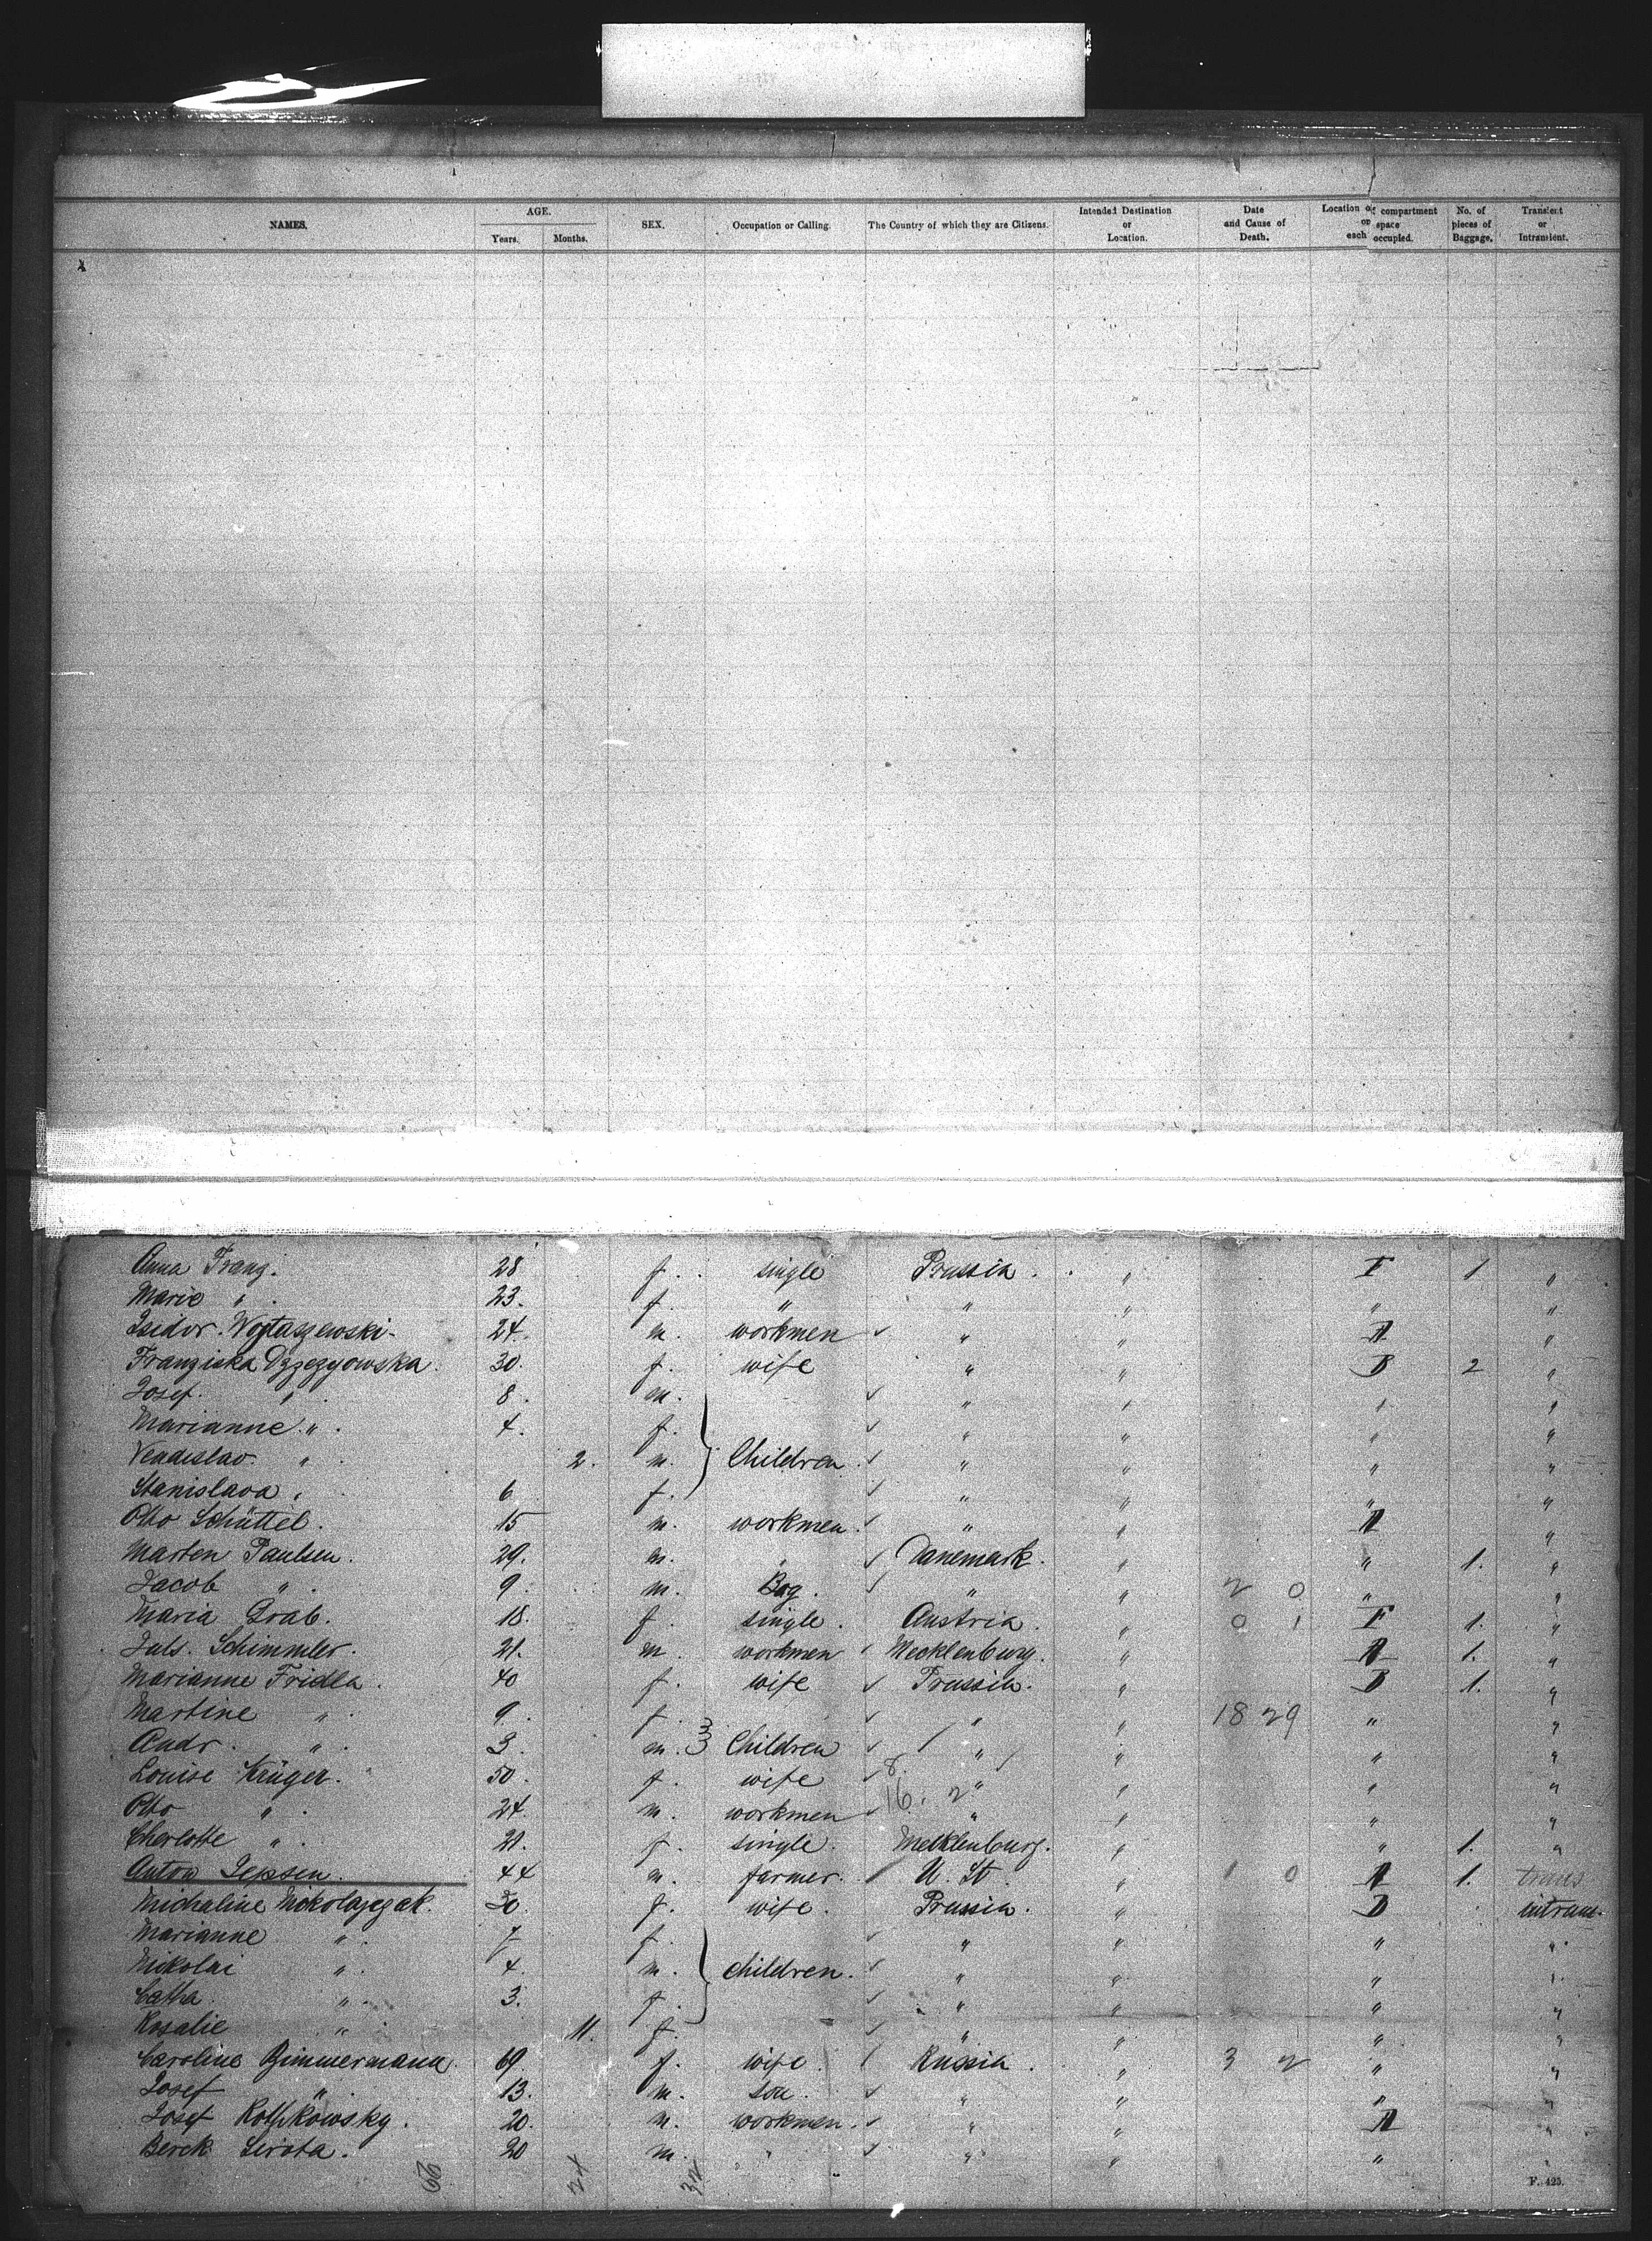 NAMES. AGE. Years. Months. SEX. Occupation or Calling. The Country of which they are Citizens. Intended Destination or Location. Date and Cause of Death. Location of compartment or space each occupied. No. of pieces of Baggage. Transient or Intransient.
Anna Franz. 28 f. single Prussia. " F 1 "
Marie " . 23. f. " " " " "
Isidor. Wojtaszewski. 24. m. workmen " " A "
Franziska 30. f. wife " " D 2 "
Josef. " . 8. m. " " " "
Marianne " . 4. f. " " " "
" . 2. m. Children " " " "
Stanislava " 6 f. " " " "
Otto Schüttel. 15 m. workmen. " " A "
Marten Paulsen. 29. m. " Danemark. " " 1. "
Jacob " . 9. m. Boy. " " 2 0 " "
Maria Grab. 18. f single. Austria. " 0 1 F 1. "
Juls. Schimmler. 21. m. workmen Mecklenburg. " A 1. "
Marianne Fridla. 40 f. wife Prussia. " D 1. "
Martine " . 9. f. " " 18 29 " "
Andr. " . 3. m. Children " " " "
Louise Krüger. 50. f. wife 8. " " " "
Otto " . 24. m. workmen 16. 2 " " " "
Charlotte " . 21. f. single. Mecklenburg. " " 1. "
Anton Jepsen. 44 m. farmer. U. St. " 1 0 A 1. trans
Michaline Nikolajczak. 30. f. wife. Prussia. " D intrans.
Marianne " . 7 f. " " " "
Nikolai " . 4. m. children. " " " "
Catha. " . 3. f. " " " "
Rosalie " . 11. f. " " " "
Caroline Zimmermann. 69. f. wife. Russia. " 3 2 " "
Josef " . 13. m. son. " " " "
Josef Rothkowsky. 20. m. workmen. " " A "
Berek Sirota. 20 m. " " " " "
24 32
F. 425.